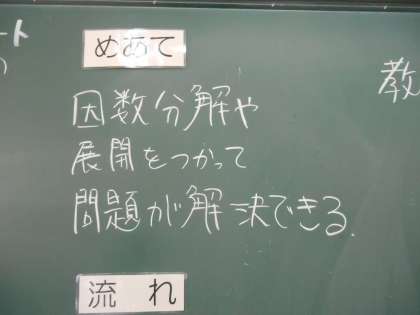 ート
めあて
教
因数分解や
展開をつかって
問題が解決できる.
流れ